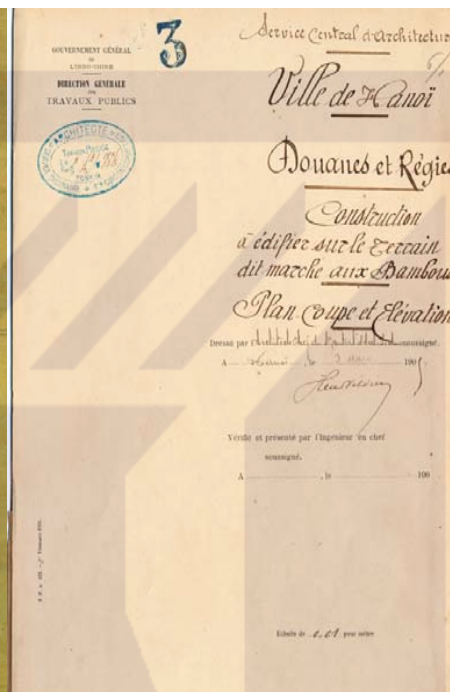 GOUVERNEMENT GÉNÉRAL
DE
L'INDO-CHINE
DIRECTION GÉNÉRALE
DES
TRAVAUX PUBLICS
3
Service Central d'Architecture
Ville de Hanoï
Douanes et Régies
Construction
à édifier sur le Terrain
dit marche aux Bambou
Plan coupe et Élévation
Dressé par l'Architecte soussigné.
A Hanoï, le 2 190
Vérifié et présenté par l'Ingénieur en chef
soussigné.
A , le 190
Echelle de 0,01 pour mètre